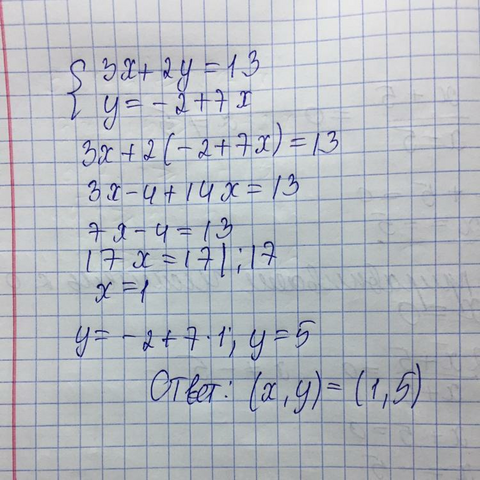 { 3x+2y=13
y=-2+7x
3x+2(-2+7x)=13
3x-4+14x=13
7x-4=13
17x=17|:17
x=1
y=-2+7·1; y=5
Ответ: (x,y)=(1,5)